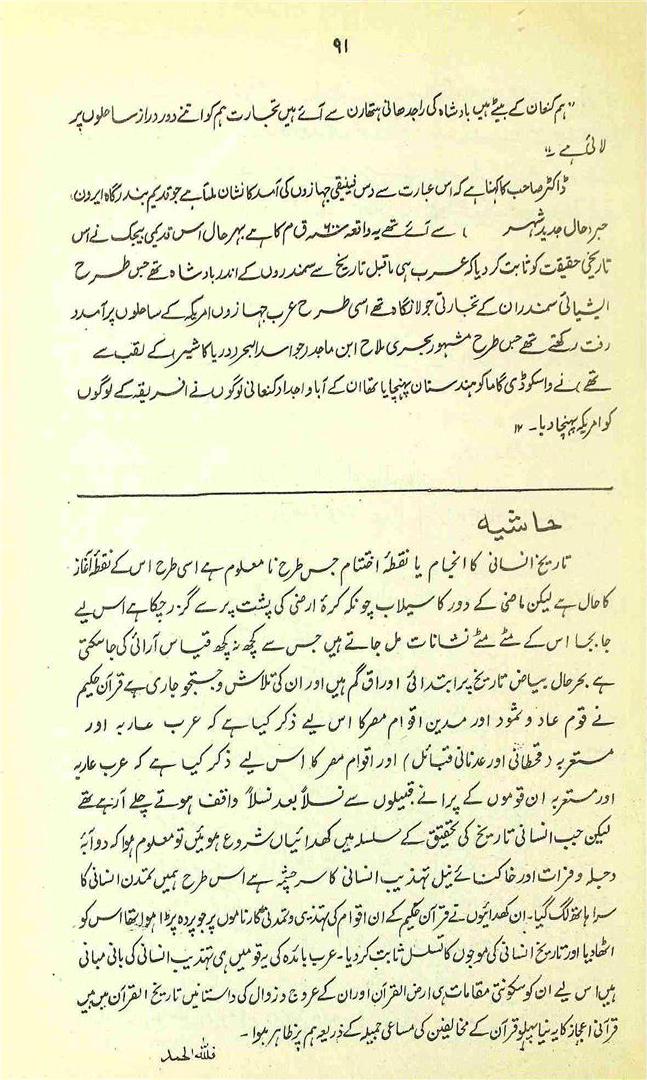 ۹۱
"ہم کنعان کے بیٹے ہیں بادشاہ کی راجدھانی ہتھارن سے آئے ہیں تجارت ہم کو اتنے دور دراز ساحلوں پر
لائی ہے ۔"
ڈاکٹر صاحب کا کہنا ہے کہ اس عبارت سے دس فینیقی جہازوں کی آمد کا نشان ملتا ہے جو قدیم بندرگاہ ایردن،
جبر (حال جدید شہر ) سے آئے تھے یہ واقعہ ۶۰۰ ق م کا ہے بہر حال اس قدیمی بیجک نے اس
تاریخی حقیقت کو ثابت کر دیا کہ عرب ہی ماقبل تاریخ سے سمندروں کے اندر بادشاہ تھے جس طرح
ایشیائی سمندر ان کے تجارتی جولانگاہ تھے اسی طرح عرب جہازوں امریکہ کے ساحلوں پر آمد و
رفت رکھتے تھے جس طرح مشہور بحری ملاح ابن ماجد (جو اسد البحر دریا کا شیر) کے لقب سے
تھے) نے واسکوڈی گاما کو ہندستان پہنچایا تھا ان کے آبا و اجداد کنعانی لوگوں نے افریقہ کے لوگوں
کو امریکہ پہنچا دیا ۔ ۱۲
حاشیہ
تاریخ انسانی کا انجام یا نقطۂ اختتام جس طرح نا معلوم ہے اسی طرح اس کے نقطۂ آغاز
کا حال ہے لیکن ماضی کے دور کا سیلاب چونکہ کرۂ ارضی کی پشت پر سے گزر چکا ہے اس لیے
جابجا اس کے مٹے مٹے نشانات مل جاتے ہیں جس سے کچھ نہ کچھ قیاس آرائی کی جا سکتی
ہے بہر حال بیاض تاریخ پر ابتدائی اوراق گم ہیں اور ان کی تلاش و جستجو جاری ہے قرآن حکیم
نے قوم عاد و ثمود اور مدین اقوام مصر کا اس لیے ذکر کیا ہے کہ عرب عاربہ اور
مستعربہ (قحطانی اور عدنانی قبائل) اور اقوام مصر کا اس لیے ذکر کیا ہے کہ عرب عاربہ
اور مستعربہ ان قوموں کے پرانے قبیلوں سے نسلاً بعد نسلاً واقف ہوتے چلے آ رہے تھے
لیکن جب انسانی تاریخ کی تحقیق کے سلسلہ میں کھدائیاں شروع ہوئیں تو معلوم ہوا کہ دوآبۂ
دجلہ و فرات اور خاکنائے نیل تہذیب انسانی کا سرچشمہ ہے اس طرح ہمیں تمدن انسانی کا
سرا ہاتھ لگ گیا۔ ان کھدائیوں نے قرآن حکیم کے ان اقوام کی تہذیبی و تمدنی کارناموں پر جو پردہ پڑا ہوا تھا اس کو
اٹھا دیا اور تاریخ انسانی کی موجوں کا تسلسل ثابت کر دیا۔ عرب بائدہ کی یہ قومیں ہی تہذیب انسانی کی بانی مبانی
ہیں اس لیے ان کو سکونتی مقامات ہی ارض القرآن اور ان کے عروج و زوال کی داستانیں تاریخ القرآن ہیں میں
قرآنی اعجاز کا یہ نیا پہلو قرآن کے مخالفین کی مساعی جمیلہ کے ذریعہ ہم پر ظاہر ہوا ۔
فللہ الحمد